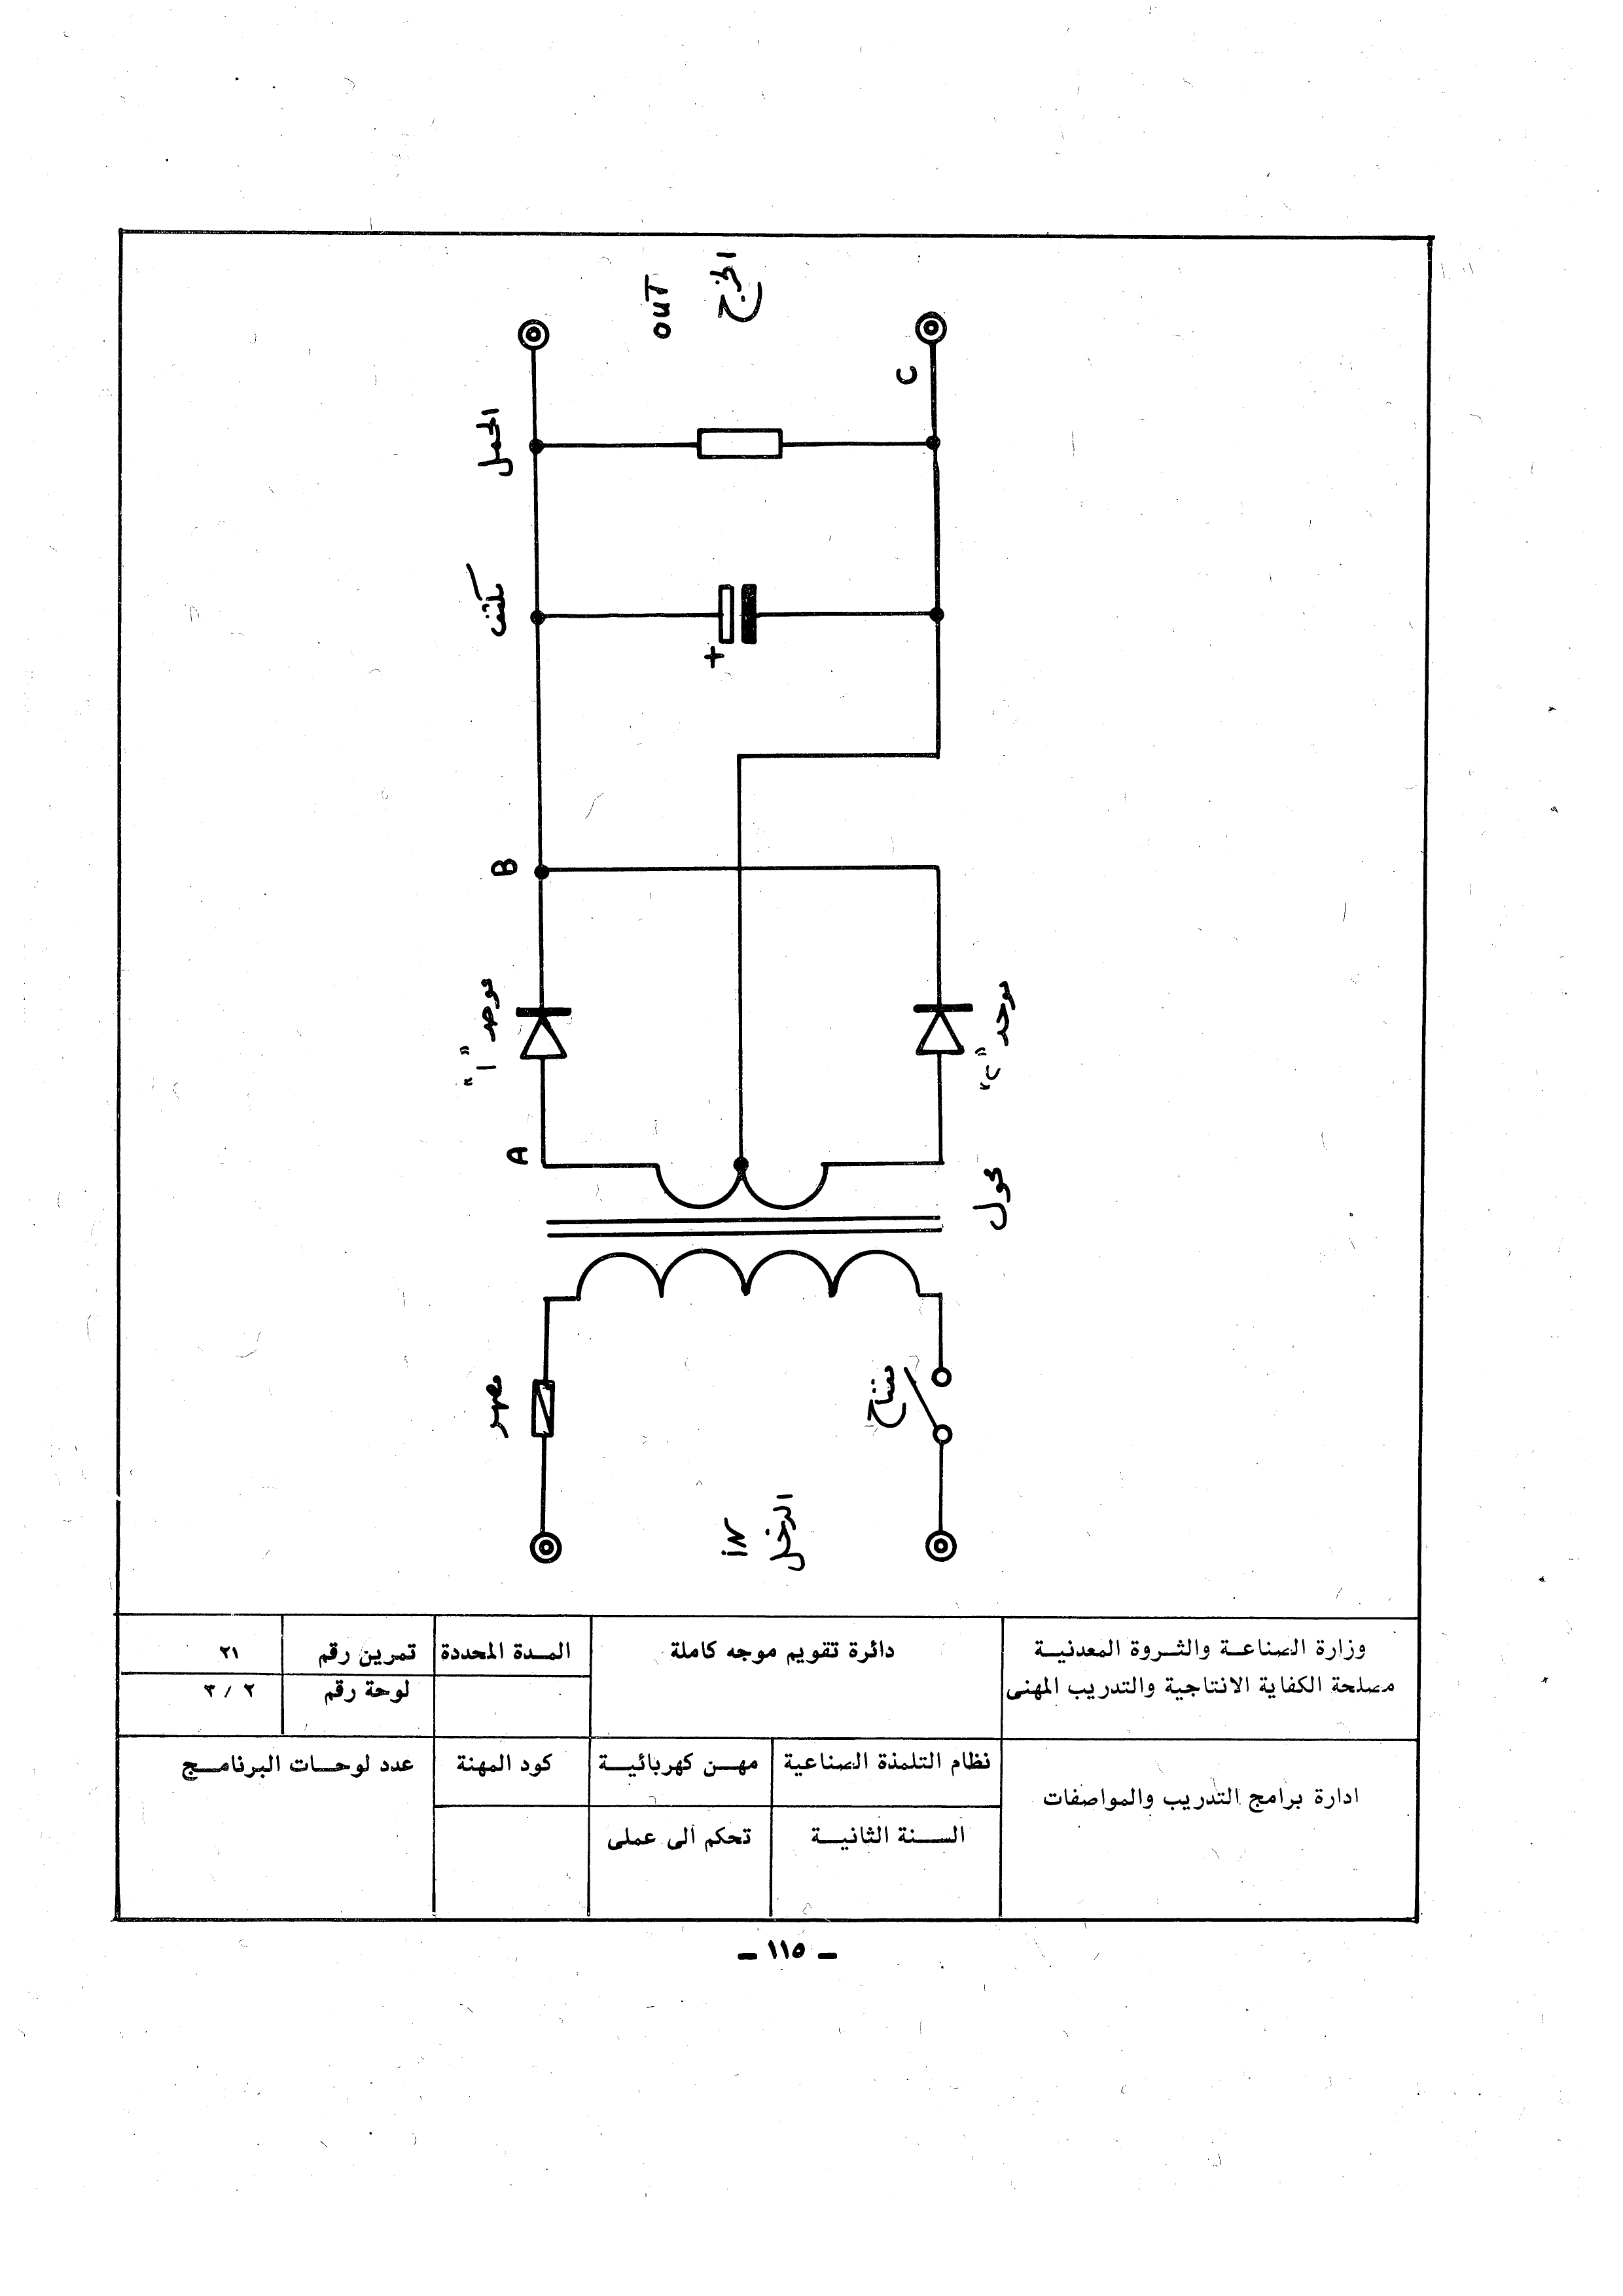 الخرج
OUT
C
الحمل
مكثف
+
B
موحد "١"
موحد "٢"
A
محول
مصهر
مفتاح
iN
الدخل
وزارة الصناعـة والثـروة المعدنيـة
مصلحة الكفاية الانتاجية والتدريب المهنى
دائرة تقويم موجه كاملة
المـدة المحددة
تمرين رقم
٢١
لوحة رقم
٢ / ٣
ادارة برامج التدريب والمواصفات
نظام التلمذة الصناعية
مهـن كهربائيـة
كود المهنة
عدد لوحـات البرنامـج
السـنة الثانيـة
تحكم آلى عملى
– ١١٥ –